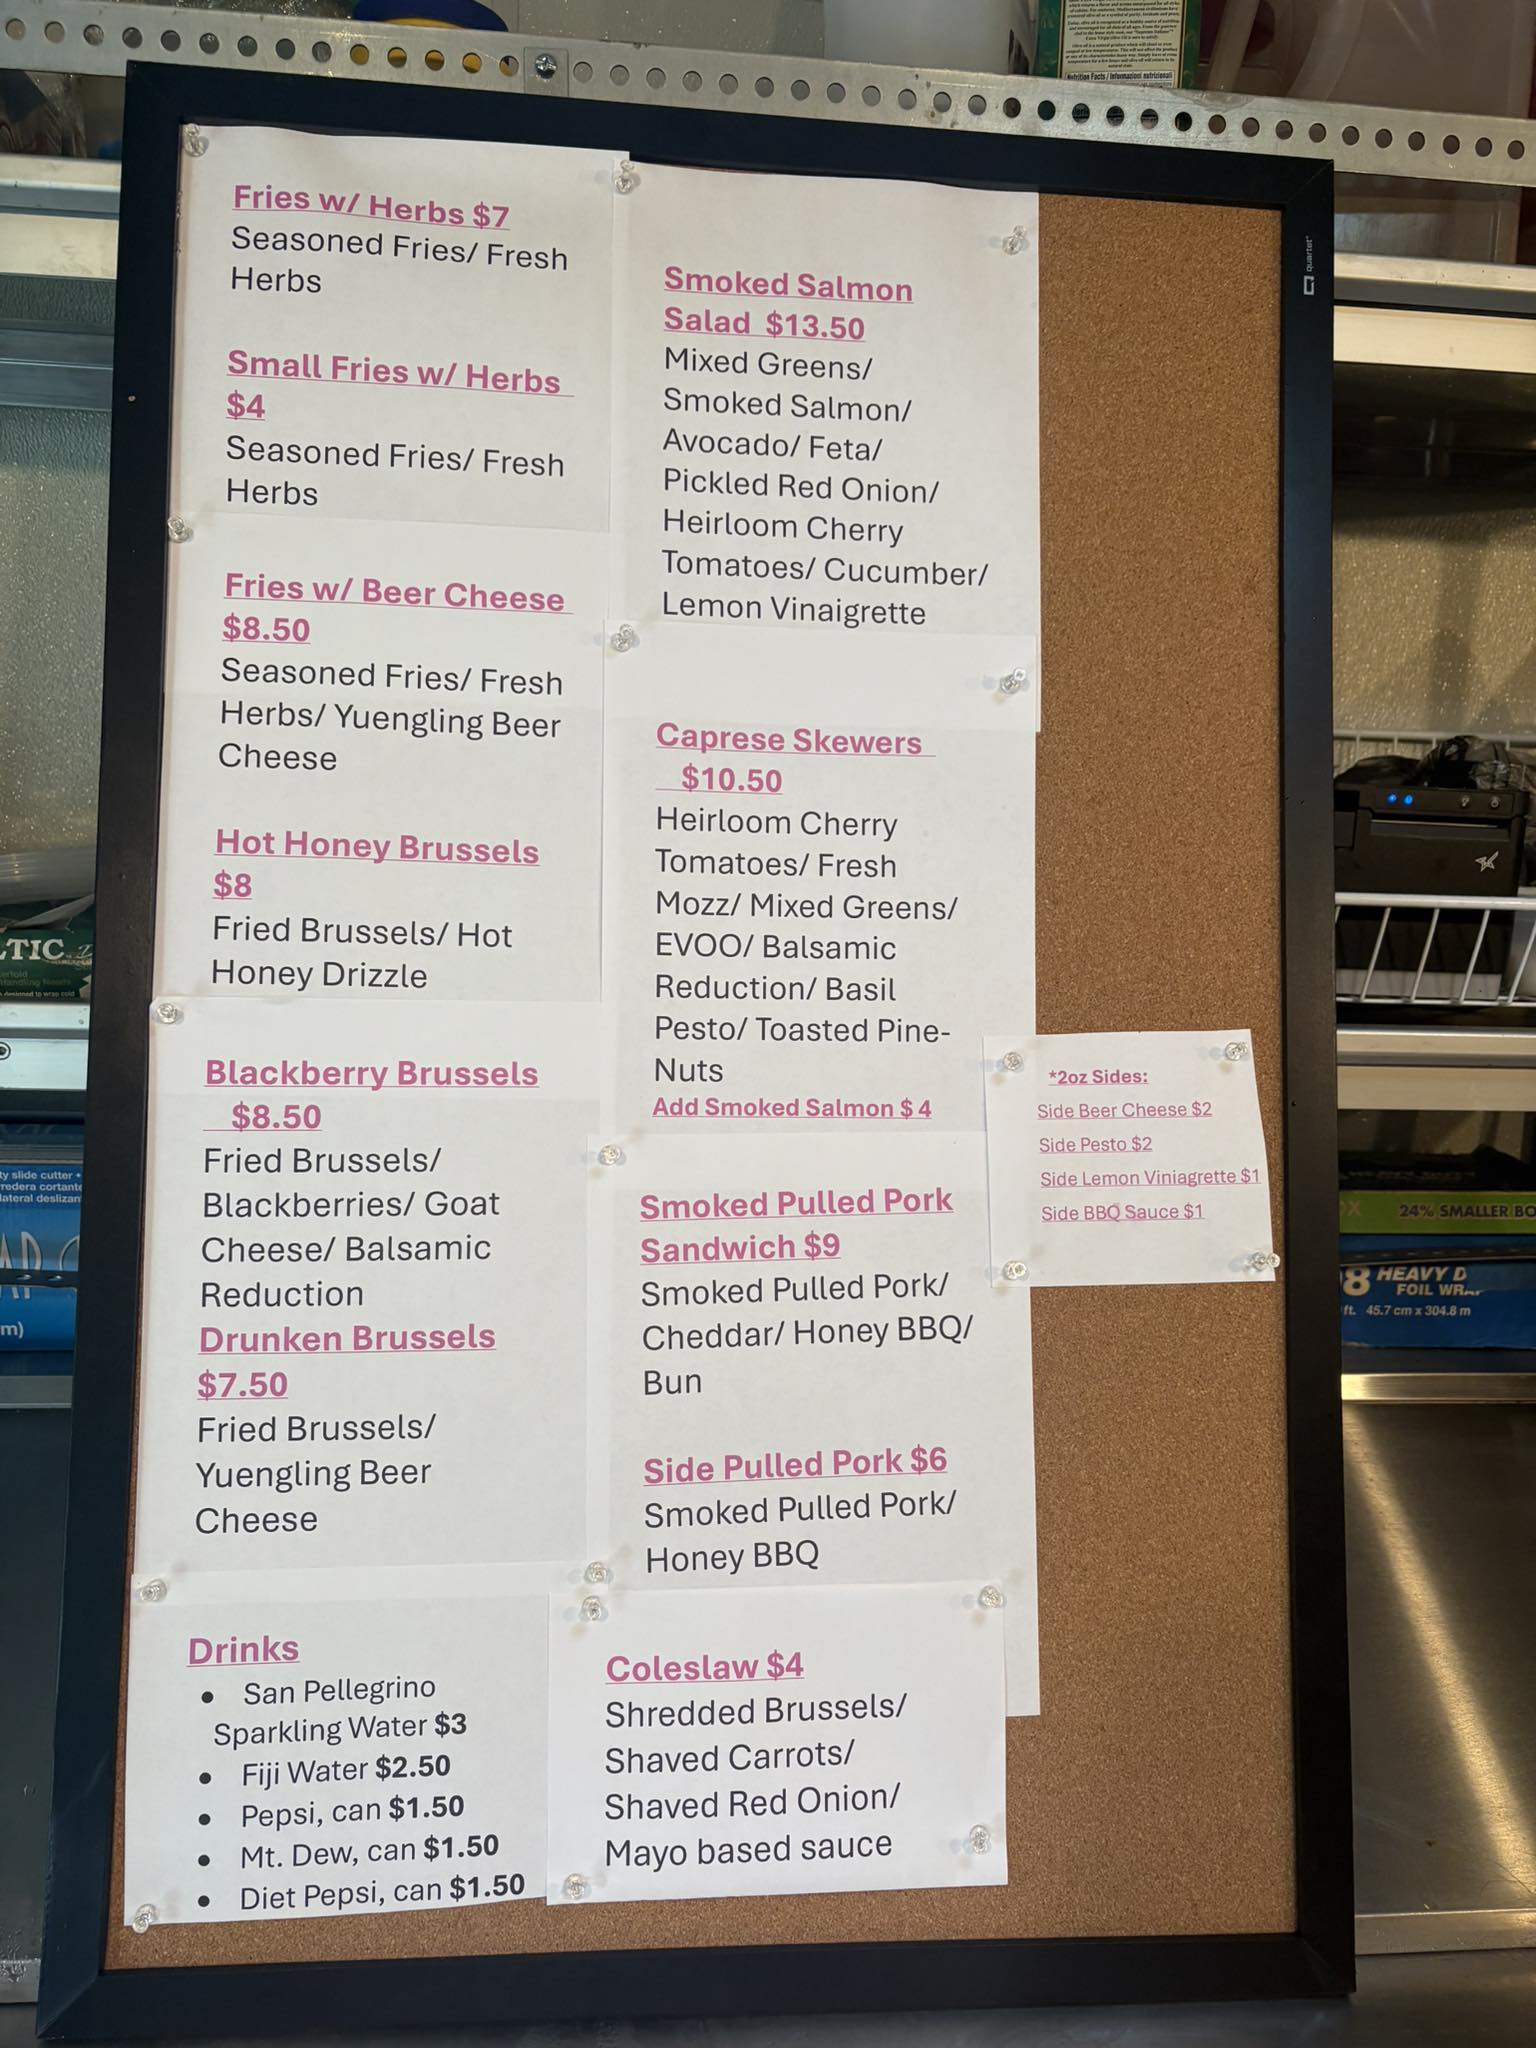 Fries w/ Herbs $7
Seasoned Fries/ Fresh
Herbs
Small Fries w/ Herbs
$4
Seasoned Fries/ Fresh
Herbs
Fries w/ Beer Cheese
$8.50
Seasoned Fries/ Fresh
Herbs/ Yuengling Beer
Cheese
Hot Honey Brussels
$8
Fried Brussels/ Hot
Honey Drizzle
Blackberry Brussels
$8.50
Fried Brussels/
Blackberries/ Goat
Cheese/ Balsamic
Reduction
Drunken Brussels
$7.50
Fried Brussels/
Yuengling Beer
Cheese
Drinks
• San Pellegrino
Sparkling Water $3
• Fiji Water $2.50
• Pepsi, can $1.50
• Mt. Dew, can $1.50
• Diet Pepsi, can $1.50
Smoked Salmon
Salad $13.50
Mixed Greens/
Smoked Salmon/
Avocado/ Feta/
Pickled Red Onion/
Heirloom Cherry
Tomatoes/ Cucumber/
Lemon Vinaigrette
Caprese Skewers
$10.50
Heirloom Cherry
Tomatoes/ Fresh
Mozz/ Mixed Greens/
EVOO/ Balsamic
Reduction/ Basil
Pesto/ Toasted Pine-
Nuts
Add Smoked Salmon $ 4
Smoked Pulled Pork
Sandwich $9
Smoked Pulled Pork/
Cheddar/ Honey BBQ/
Bun
Side Pulled Pork $6
Smoked Pulled Pork/
Honey BBQ
Coleslaw $4
Shredded Brussels/
Shaved Carrots/
Shaved Red Onion/
Mayo based sauce
*2oz Sides:
Side Beer Cheese $2
Side Pesto $2
Side Lemon Viniagrette $1
Side BBQ Sauce $1
quartet
Nutrition Facts / Informazioni nutrizionali
24% SMALLER BO
8 HEAVY D
FOIL WR
ft. 45.7 cm x 304.8 m
LTIC
ty slide cutter •
redera cortante
lateral deslizan
m)